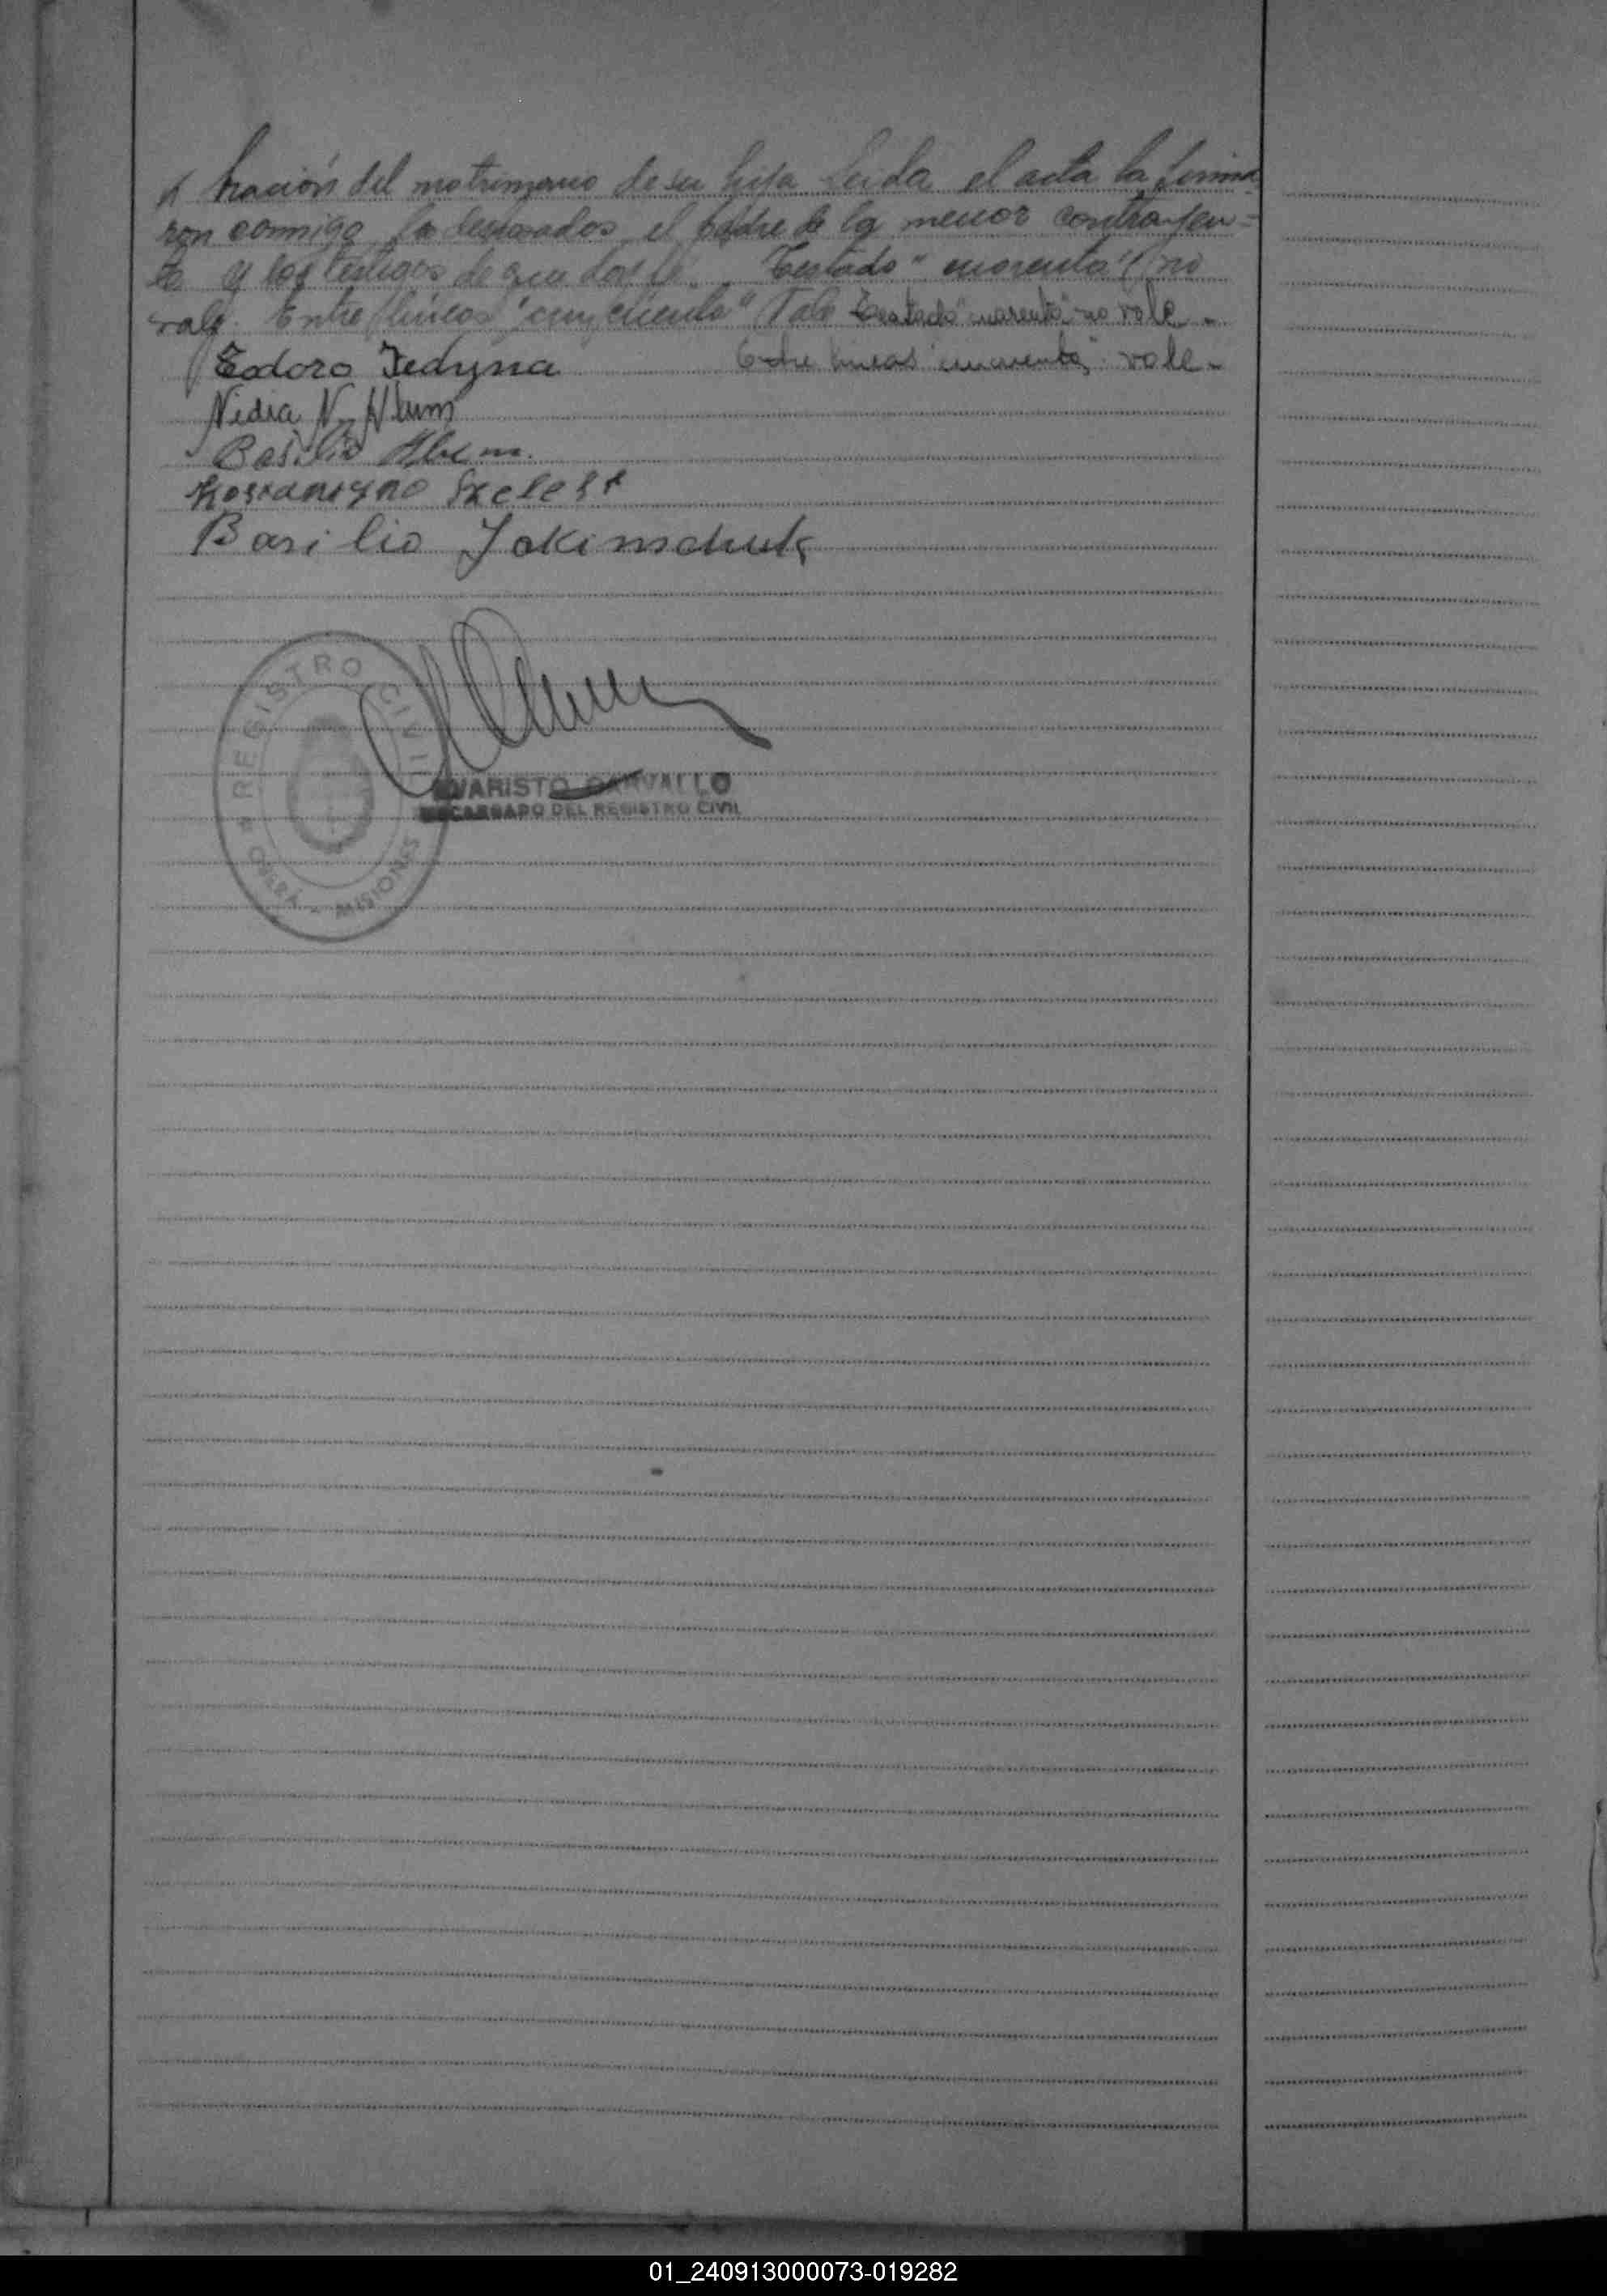 bración del matrimonio de su hija Leida el acta la firma
ron conmigo los desposados, el padre de la menor contrayen=
te y los testigos de que doy fé. Testado "cuarenta" no
vale. Entre líneas "cincuenta" Vale Testado "cuarenta" no vale -
Eodoro Fedyna Entre lineas "cincuenta" vale -
Nidia N. Hlum
Basilio Hlum.
Basilio Jakimschuk
REGISTRO CIVIL
OBERÁ - MISIONES
EVARISTO CARVALLO
ENCARGADO DEL REGISTRO CIVIL
01_240913000073-019282